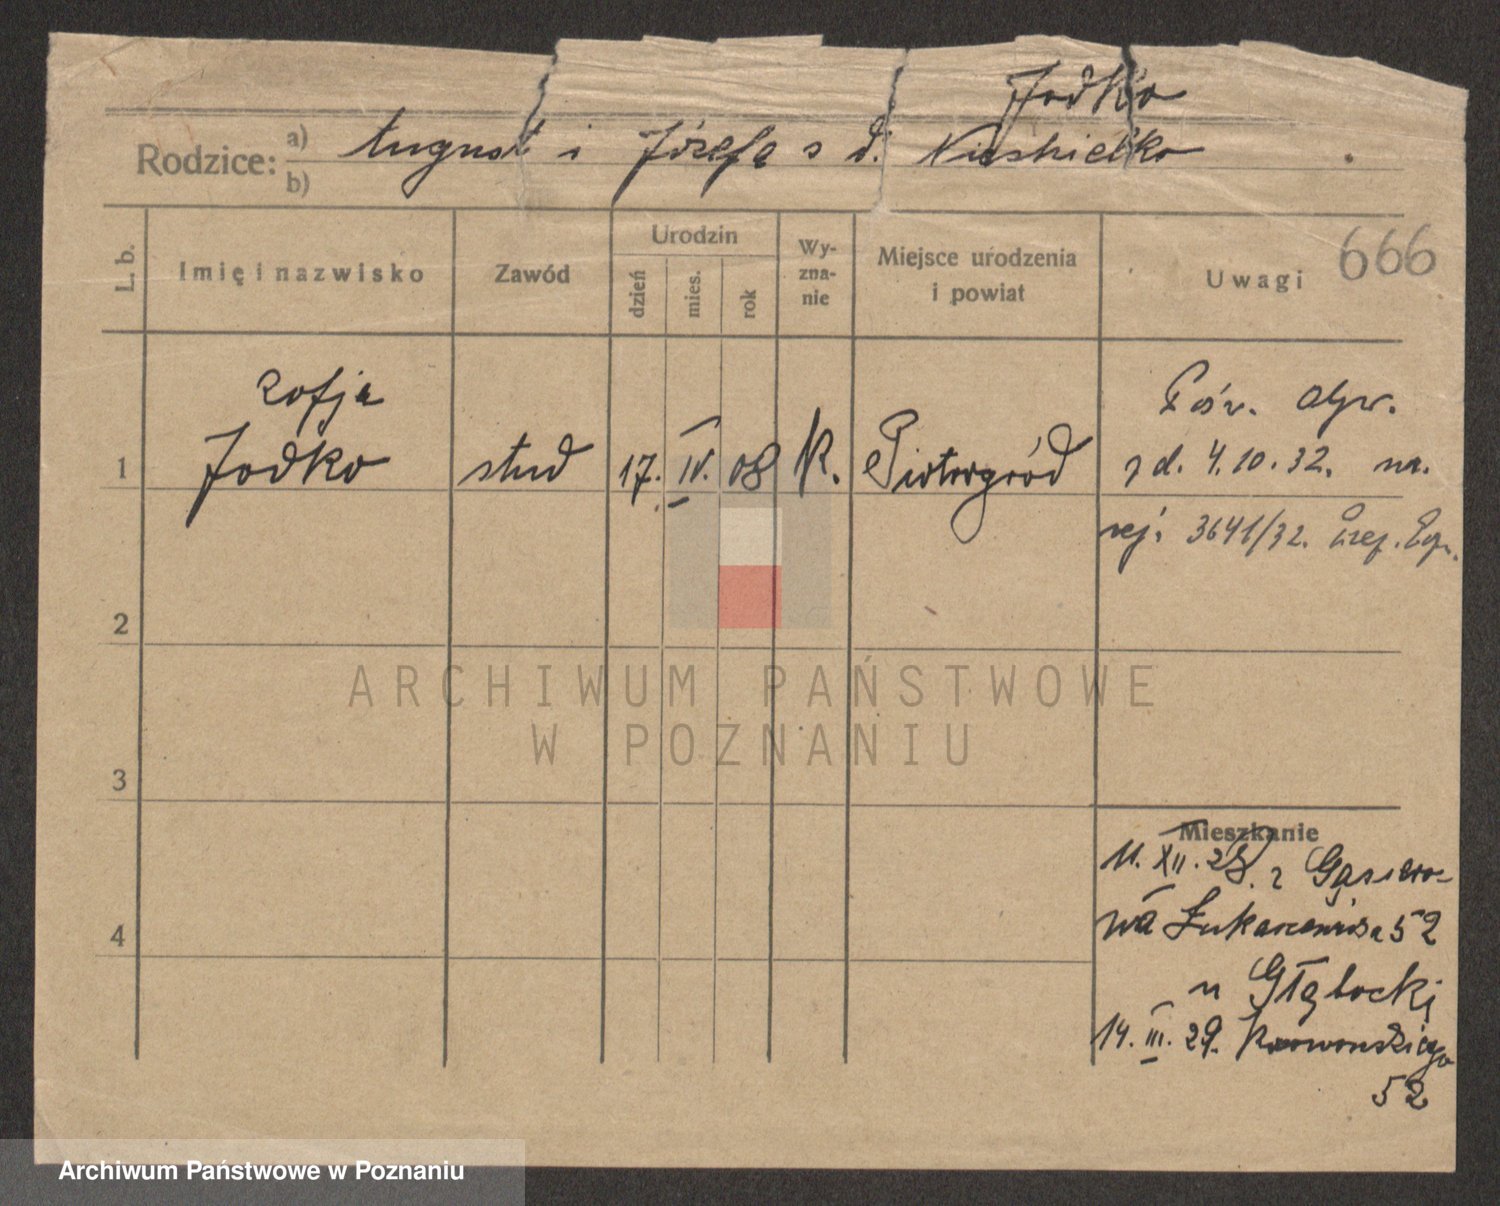 Jodko
Rodzice: a) August i Józefa s d.
b)
L. b. Imię i nazwisko Zawód Urodzin dzień mies. rok Wy-zna-nie Miejsce urodzenia i powiat Uwagi 666
Zofja Pośw. obyw.
1 Jodko stud 17. IV. 08 K. Piotrogród z d. 4.10.32. nr.
rej. 3641/32.
2
ARCHIWUM PAŃSTWOWE
W POZNANIU
3
Mieszkanie
11. XII. 28. z
Łukaszewicza 52
4
u Głębockiej
14. III. 29.
52
Archiwum Państwowe w Poznaniu